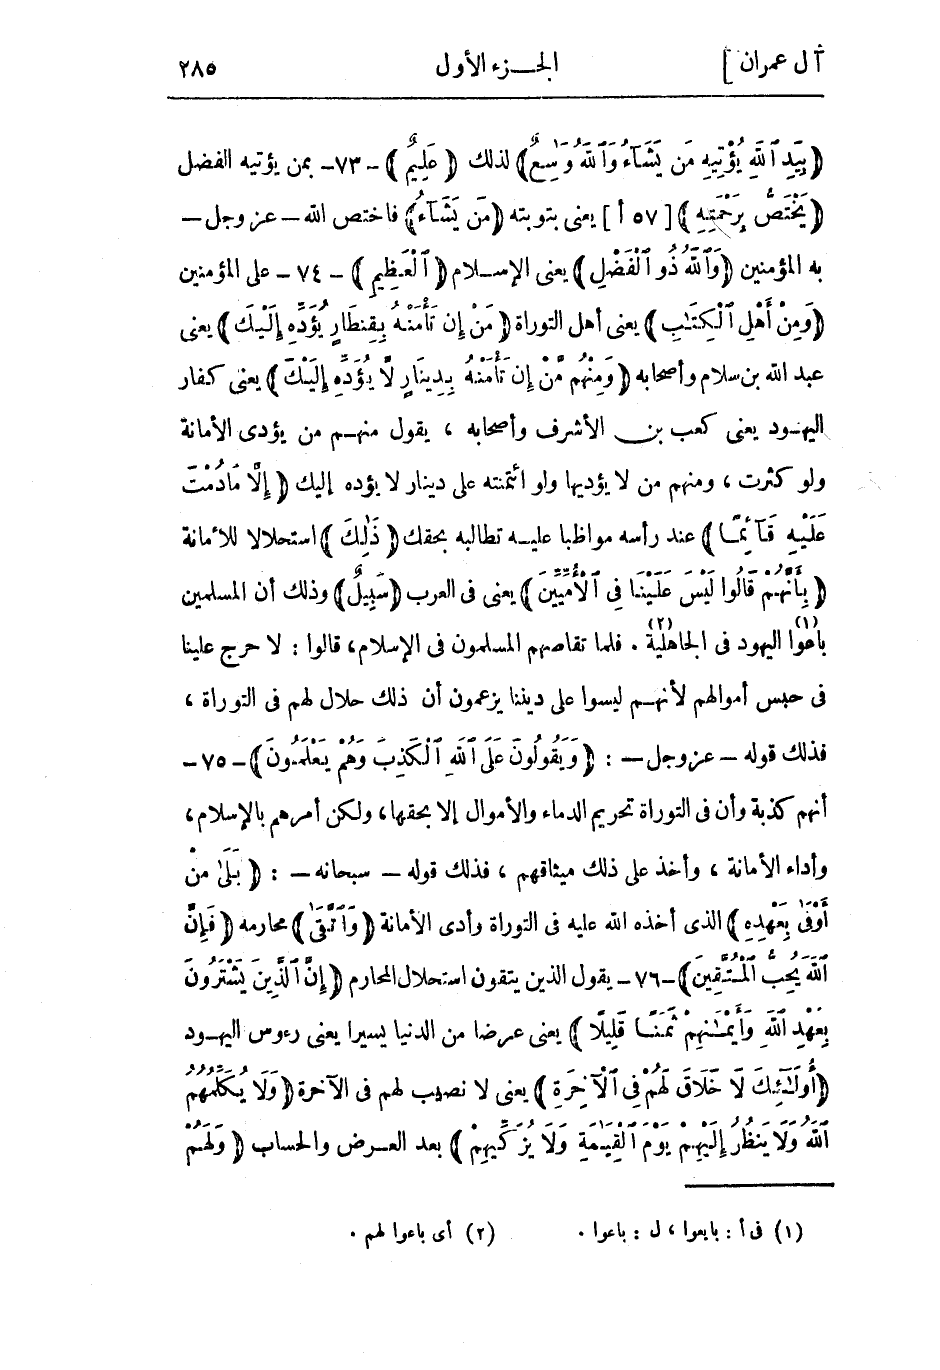 آل عمران] الجـزء الأول ٢٨٥
(بِيَدِ ٱللَّهِ يُؤْتِيهِ مَن يَشَآءُ وَٱللَّهُ وَٰسِعٌ) لذلك (عَلِيمٌ) - ٧٣- بمن يؤتيه الفضل
(يَخْتَصُّ بِرَحْمَتِهِ) [٥٧ أ] يعنى بتوبته (مَن يَشَآءُ) فاختص الله - عز وجل -
به المؤمنين (وَٱللَّهُ ذُو ٱلْفَضْلِ) يعنى الإسـلام (ٱلْعَظِيمِ) - ٧٤ - على المؤمنين
(وَمِنْ أَهْلِ ٱلْكِتَـٰبِ) يعنى أهل التوراة (مَنْ إِن تَأْمَنْهُ بِقِنطَارٍ يُؤَدِّهِ إِلَيْكَ) يعنى
عبد الله بن سلام وأصحابه (وَمِنْهُم مَّنْ إِن تَأْمَنْهُ بِدِينَارٍ لَّا يُؤَدِّهِ إِلَيْكَ) يعنى كفار
اليهـود يعنى كعب بن الأشرف وأصحابه ، يقول منهـم من يؤدى الأمانة
ولو كثرت ، ومنهم من لا يؤديها ولو ائتمنته على دينار لا يؤده إليك (إِلَّا مَا دُمْتَ
عَلَيْهِ قَآئِمًا) عند رأسه مواظبا عليـه تطالبه بحقك (ذَٰلِكَ) استحلالا للأمانة
(بِأَنَّهُمْ قَالُوا لَيْسَ عَلَيْنَا فِى ٱلْأُمِّيِّـۧنَ) يعنى فى العرب (سَبِيلٌ) وذلك أن المسلمين
باعوا(١) اليهود فى الجاهلية(٢) . فلما تقاصهم المسلمون فى الإسلام، قالوا : لا حرج علينا
فى حبس أموالهم لأنهـم ليسوا على ديننا يزعمون أن ذلك حلال لهم فى التوراة ،
فذلك قوله - عز وجل - : (وَيَقُولُونَ عَلَى ٱللَّهِ ٱلْكَذِبَ وَهُمْ يَعْلَمُونَ) - ٧٥ -
أنهم كذبة وأن فى التوراة تحريم الدماء والأموال إلا بحقها، ولكن أمرهم بالإسلام،
وأداء الأمانة ، وأخذ على ذلك ميثاقهم ، فذلك قوله - سبحانه - : (بَلَىٰ مَنْ
أَوْفَىٰ بِعَهْدِهِ) الذى أخذه الله عليه فى التوراة وأدى الأمانة (وَٱتَّقَىٰ) محارمه (فَإِنَّ
ٱللَّهَ يُحِبُّ ٱلْمُتَّقِينَ) - ٧٦ - يقول الذين يتقون استحلال المحارم (إِنَّ ٱلَّذِينَ يَشْتَرُونَ
بِعَهْدِ ٱللَّهِ وَأَيْمَـٰنِهِمْ ثَمَنًا قَلِيلًا) يعنى عرضا من الدنيا يسيرا يعنى رءوس اليهـود
(أُولَـٰٓئِكَ لَا خَلَاقَ لَهُمْ فِى ٱلْآخِرَةِ) يعنى لا نصيب لهم فى الآخرة (وَلَا يُكَلِّمُهُمُ
ٱللَّهُ وَلَا يَنظُرُ إِلَيْهِمْ يَوْمَ ٱلْقِيَـٰمَةِ وَلَا يُزَكِّيهِمْ) بعد العـرض والحساب (وَلَهُمْ
(١) فى أ : بايعوا ، ل : باعوا . (٢) أى باعوا لهم .